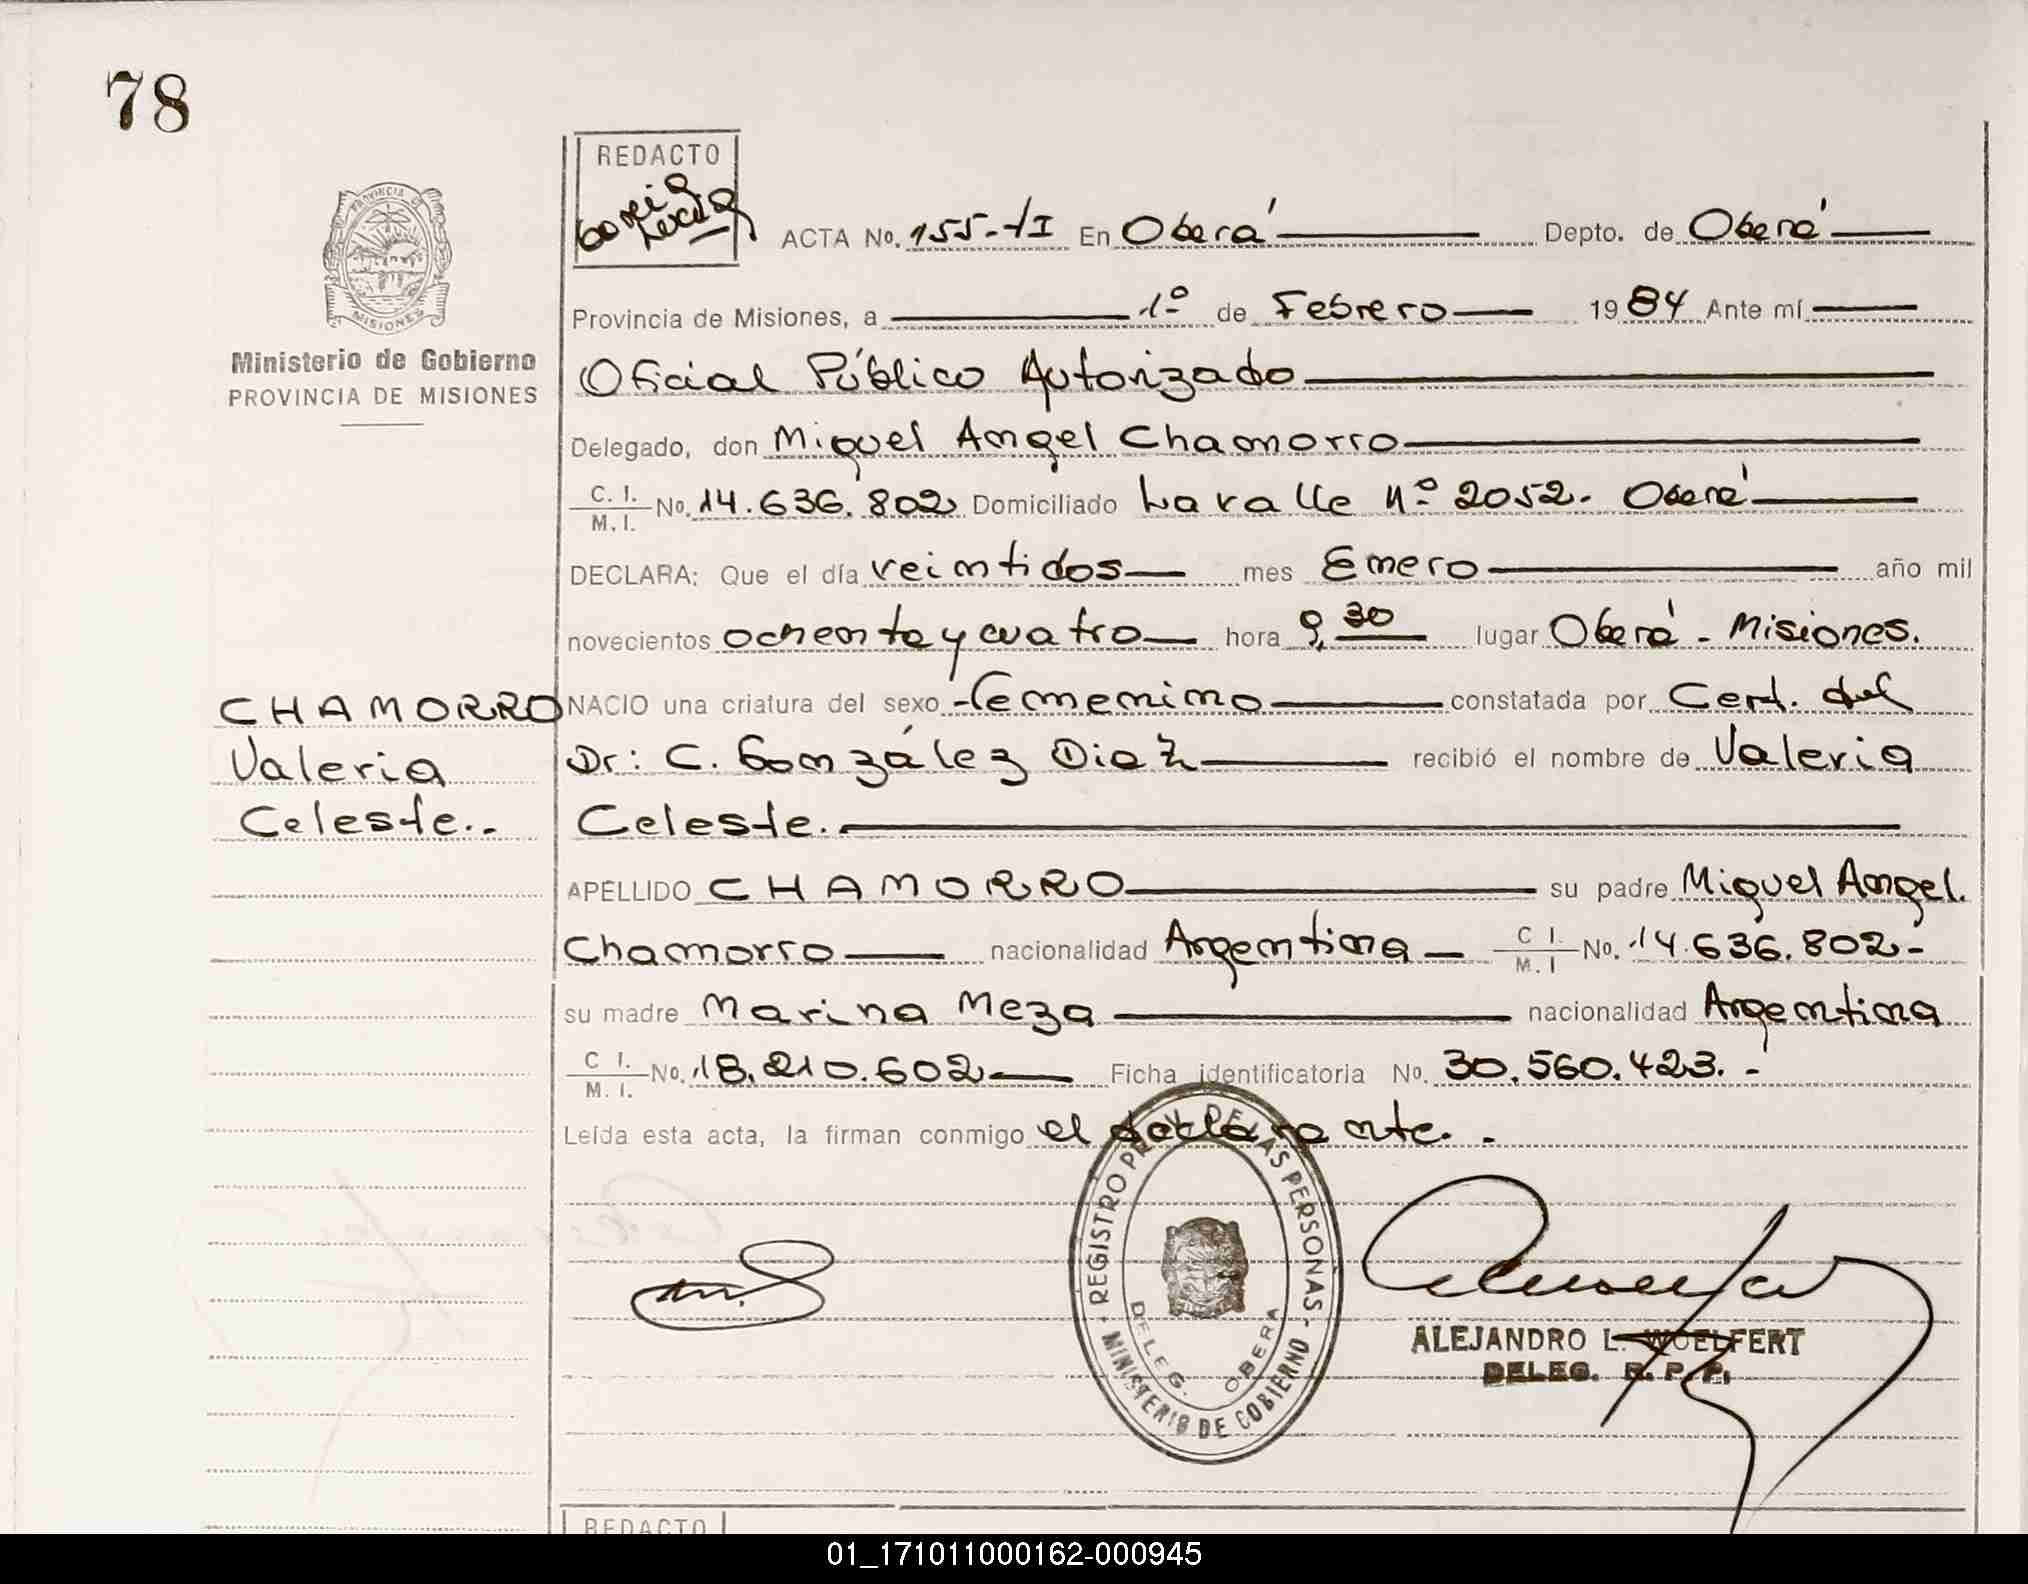 78
REDACTO
PROVINCIA DE
MISIONES
Ministerio de Gobierno
PROVINCIA DE MISIONES
ACTA No. 155-TI En Oberá Depto. de Oberá
Provincia de Misiones, a 1º de Febrero 1984 Ante mí
Oficial Público Autorizado
Delegado, don Miguel Angel Chamorro
C. I. / M. I. No. 14.636.802 Domiciliado Lavalle Nº 2052. Oberá
DECLARA: Que el día veintidos mes Enero año mil
novecientos ochenta y cuatro hora 9,30 lugar Oberá - Misiones.
CHAMORRO
Valeria
Celeste.-
NACIO una criatura del sexo femenino constatada por Cert. del
Dr: C. González Diaz recibió el nombre de Valeria
Celeste.
APELLIDO CHAMORRO su padre Miguel Angel.
Chamorro nacionalidad Argentina C I. / M. I No. 14.636.802-
su madre Marina Meza nacionalidad Argentina
C I. / M. I. No. 18.210.602 Ficha identificatoria No. 30.560.423.-
Leída esta acta, la firman conmigo el declarante.-
REGISTRO PROV. DE LAS PERSONAS
DELEG. OBERA
MINISTERIO DE GOBIERNO
ALEJANDRO L. WOELFERT
DELEG. R. P. P.
REDACTO
01_171011000162-000945